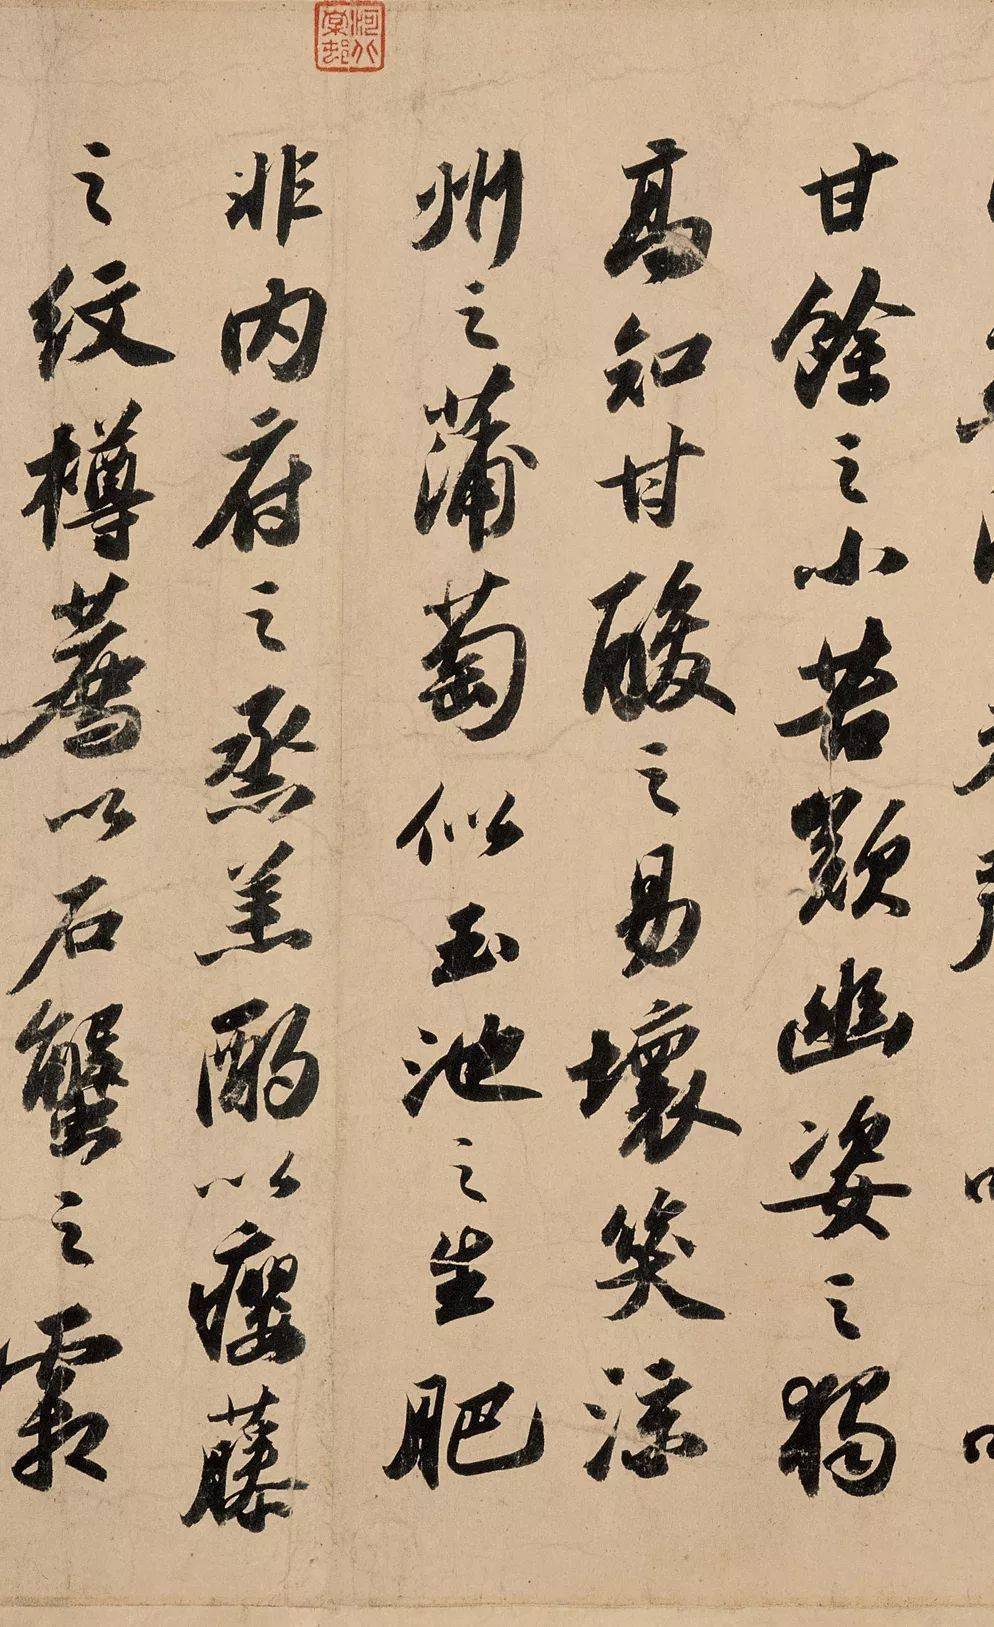 甘餘之小苦歎幽姿之獨
高知甘酸之易壞笑涼
州之蒲萄似玉池之生肥
非內府之烝羔酌以癭藤
之紋樽薦以石蟹之霜